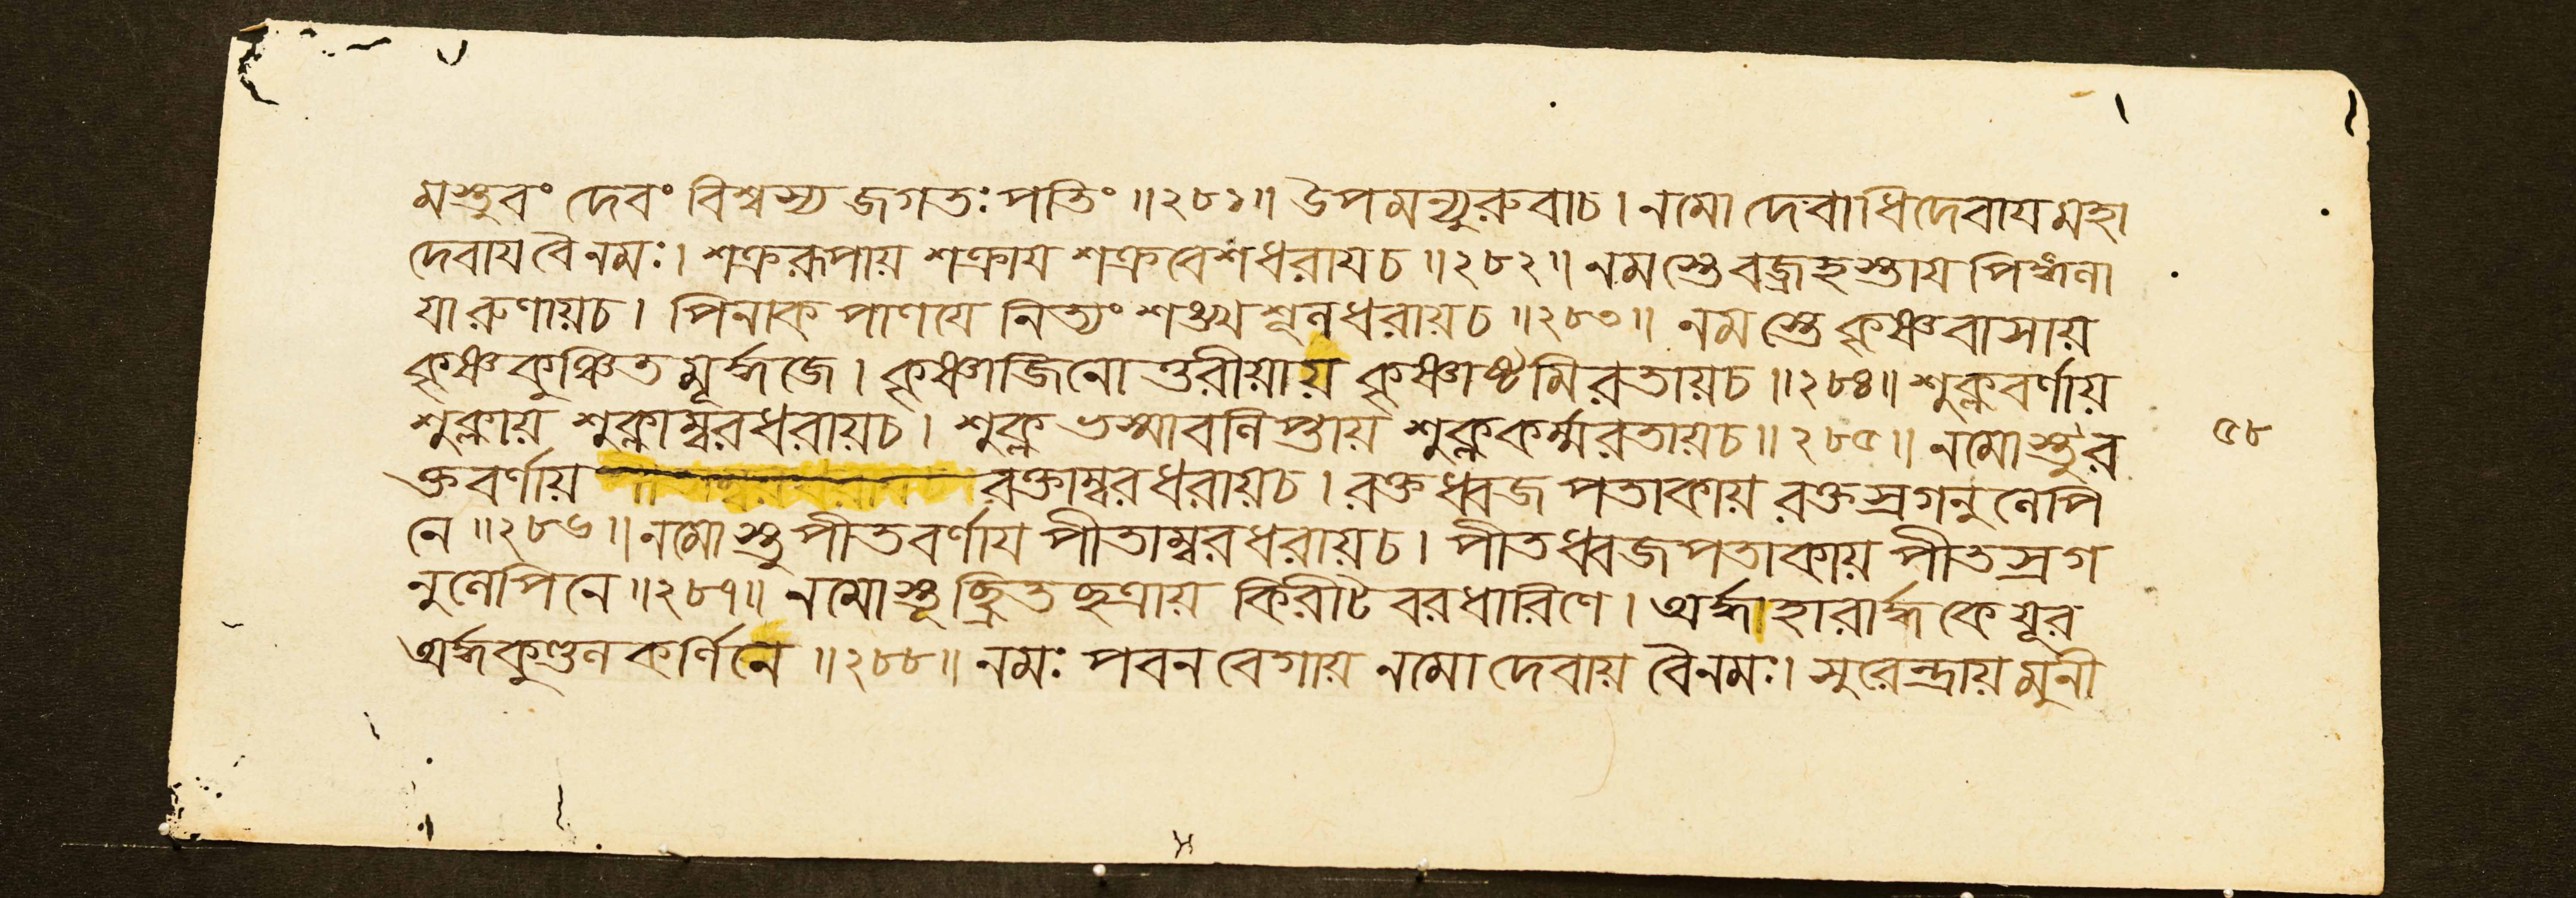 মস্তুবং দেবং বিশ্বস্য জগতঃ পতিং ॥২৮১॥ উপমন্যুরুবাচ। নমো দেবাধিদেবায মহা
দেবায বৈ নমঃ। শক্ররূপায় শক্রায শক্রবেশধরায়চ ॥২৮২॥ নমস্তে বজ্রহস্তায পিঙ্গলা
যারুণায়চ। পিনাক পাণযে নিত্যং শঙ্খশূলধরায়চ ॥২৮৩॥ নমস্তে কৃষ্ণবাসায়
কৃষ্ণকুঞ্চিত মূর্দ্ধজে। কৃষ্ণাজিনোত্তরীয়ায় কৃষ্ণাষ্টমিরতায়চ ॥২৮৪॥ শুক্লবর্ণায়
শুক্লায় শুক্লাম্বরধরায়চ। শুক্ল ভস্মাবলিপ্তায় শুক্লকর্ম্মরতায়চ ॥২৮৫॥ নমোস্তু র
৫৮
ক্তবর্ণায় রক্তাম্বরধরায়চ। রক্তধ্বজ পতাকায় রক্তস্রগনুলেপি
নে ॥২৮৬॥ নমোস্তু পীতবর্ণায পীতাম্বরধরায়চ। পীতধ্বজপতাকায় পীতস্রগ
নুলেপিনে ॥২৮৭॥ নমোস্তূচ্ছ্রিতছত্রায় কিরীটবরধারিণে। অর্দ্ধাহারার্দ্ধকেযূর
অর্দ্ধকুণ্ডল কর্ণিনে ॥২৮৮॥ নমঃ পবনবেগায় নমো দেবায় বৈ নমঃ। সুরেন্দ্রায় মুনী